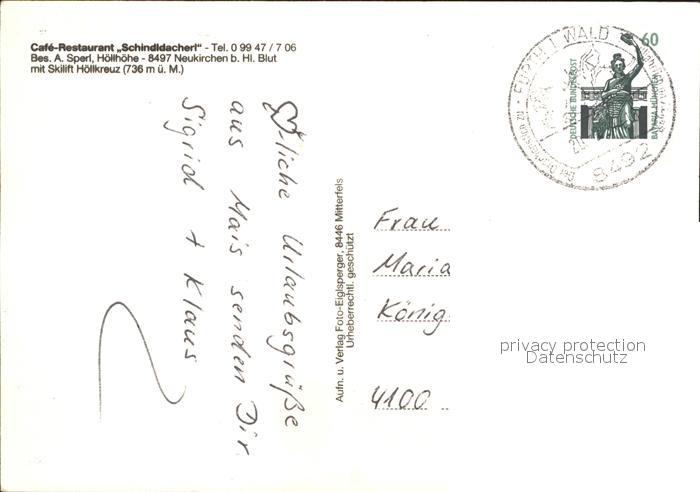 Café-Restaurant „Schindldacherl" - Tel. 0 99 47 / 7 06
Bes. A. Sperl, Höllhöhe - 8497 Neukirchen b. Hl. Blut
mit Skilift Höllkreuz (736 m ü. M.)
♡liche Urlaubsgrüße
aus Mais senden Dir
Sigrid + Klaus
Aufn. u. Verlag Foto-Eiglsperger, 8446 Mitterfels
Urheberrechtl. geschützt
FURTH I WALD
8492
60
DEUTSCHE BUNDESPOST
BAVARIA MÜNCHEN
Frau
Maria
König
4100
privacy protection
Datenschutz